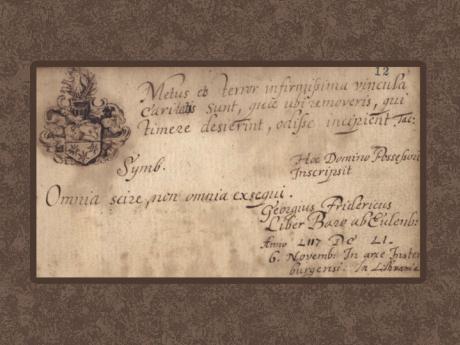 12
Metus et terror infirmissima vincula
caritatis sunt, quae ubi removeris, qui
timere desierint, odisse incipient Tac:
Symb.
Hoc Domino Possessori
Inscripsit
Omnia scire, non omnia exsequi.
Georgius Fridericus
Liber Baro ab Eulenb
Anno
6. Novemb: In arce Inster
burgensi. In Lithvania